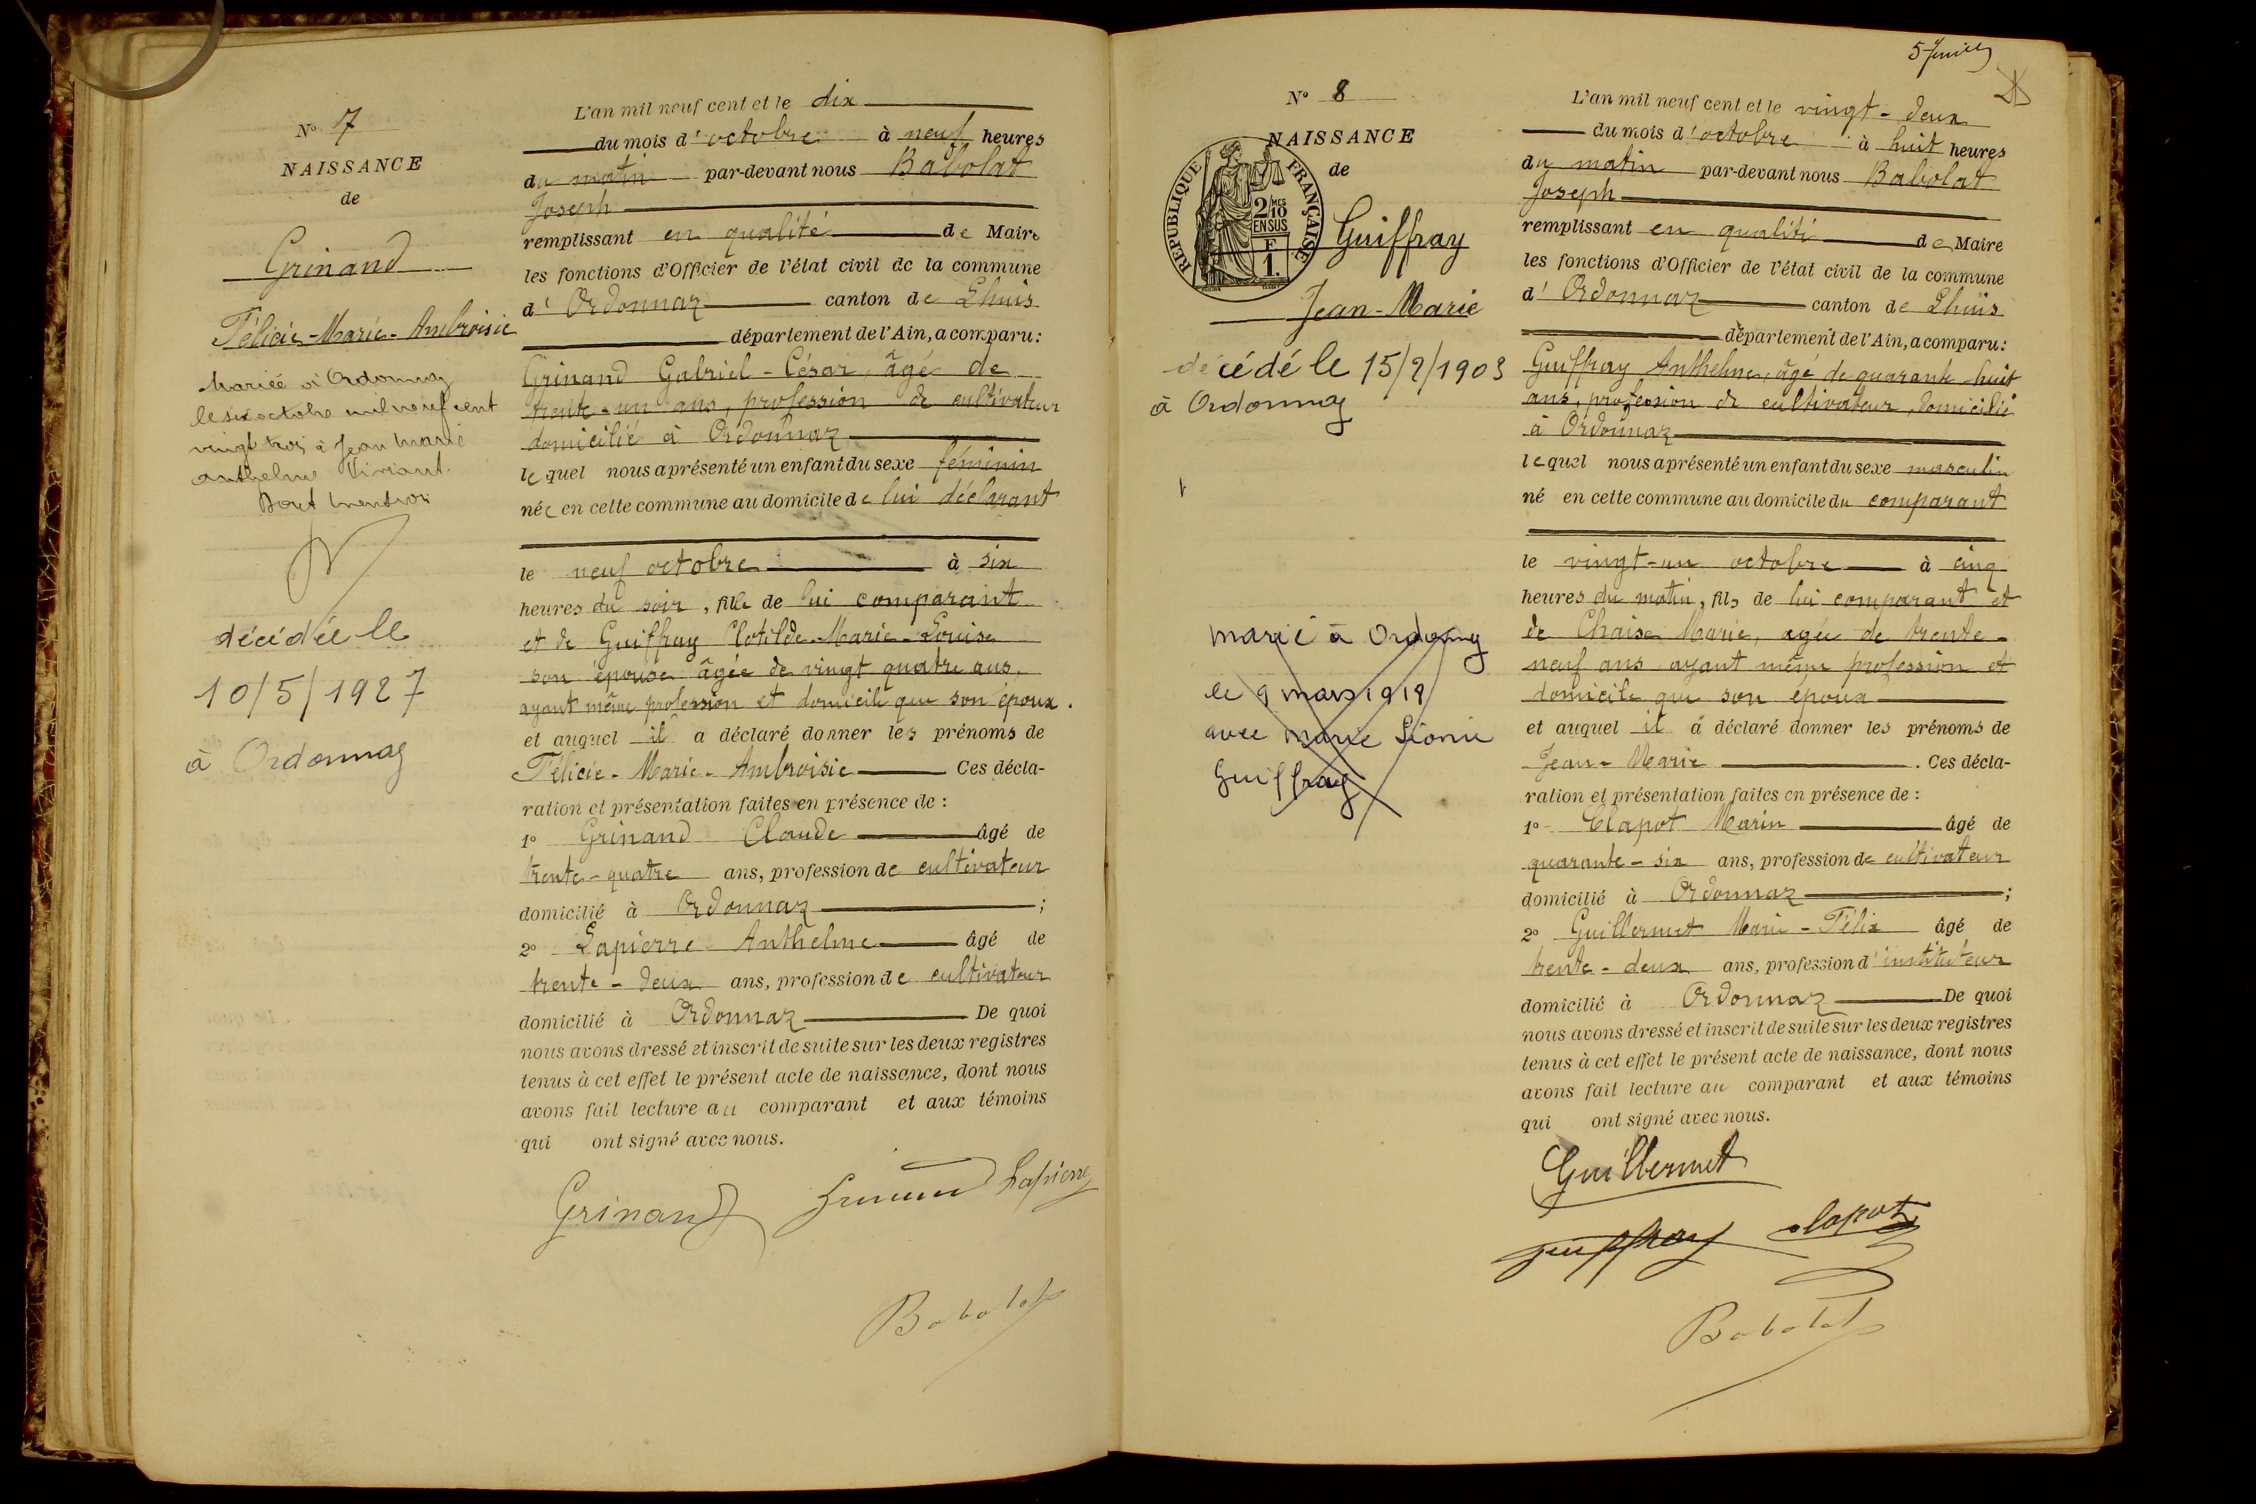 N° 7
NAISSANCE
de
Grinand
Félicie-Marie-Ambroisie
Mariée à Ordonnaz
le six octobre mil neuf cent
vingt trois à Jean Marie
Anthelme
Dont mention
décédée le
10/5/1927
à Ordonnaz
L'an mil neuf cent et le dix
du mois d'octobre à neuf heures
du matin par-devant nous Babolat
Joseph
remplissant en qualité de Maire
les fonctions d'Officier de l'état civil de la commune
d'Ordonnaz canton de Lhuis
département de l'Ain, a comparu:
Grinand Gabriel-César, âgé de
trente-un ans, profession de cultivateur
domicilié à Ordonnaz
lequel nous a présenté un enfant du sexe féminin
née en cette commune au domicile de lui déclarant
le neuf octobre à six
heures du soir, fille de lui comparant
et de Guiffray Clotilde-Marie-Louise
son épouse âgée de vingt quatre ans,
ayant même profession et domicile que son époux.
et auquel il a déclaré donner les prénoms de
Félicie-Marie-Ambroisie Ces décla-
ration et présentation faites en présence de :
1° Grinand Claude âgé de
trente-quatre ans, profession de cultivateur
domicilié à Ordonnaz ;
2° Lapierre Anthelme âgé de
trente-deux ans, profession de cultivateur
domicilié à Ordonnaz De quoi
nous avons dressé et inscrit de suite sur les deux registres
tenus à cet effet le présent acte de naissance, dont nous
avons fait lecture au comparant et aux témoins
qui ont signé avec nous.
Grinand Grinand Lapierre
Babolat
5 Juill
N° 8
NAISSANCE
de
RÉPUBLIQUE FRANÇAISE
2/10 MES
EN SUS
F
1.
Guiffray
Jean-Marie
décédé le 15/2/1903
à Ordonnaz
marié à Ordonnaz
le 9 mars 1918
avec Marie Léonie
Guiffray
L'an mil neuf cent et le vingt-deux
du mois d'octobre à huit heures
du matin par-devant nous Babolat
Joseph
remplissant en qualité de Maire
les fonctions d'Officier de l'état civil de la commune
d'Ordonnaz canton de Lhuis
département de l'Ain, a comparu:
Guiffray Anthelme, âgé de quarante-huit
ans, profession de cultivateur, domicilié
à Ordonnaz
lequel nous a présenté un enfant du sexe masculin
né en cette commune au domicile du comparant
le vingt-un octobre à cinq
heures du matin, fils de lui comparant et
de Chaise Marie, agée de trente-
neuf ans ayant même profession et
domicile que son époux
et auquel il a déclaré donner les prénoms de
Jean-Marie . Ces décla-
ration et présentation faites en présence de :
1° Clapot Marin âgé de
quarante-six ans, profession de cultivateur
domicilié à Ordonnaz ;
2° Guillermet Marie-Félix âgé de
trente-deux ans, profession d'instituteur
domicilié à Ordonnaz De quoi
nous avons dressé et inscrit de suite sur les deux registres
tenus à cet effet le présent acte de naissance, dont nous
avons fait lecture au comparant et aux témoins
qui ont signé avec nous.
Guillermet
Guiffray Clapot
Babolat